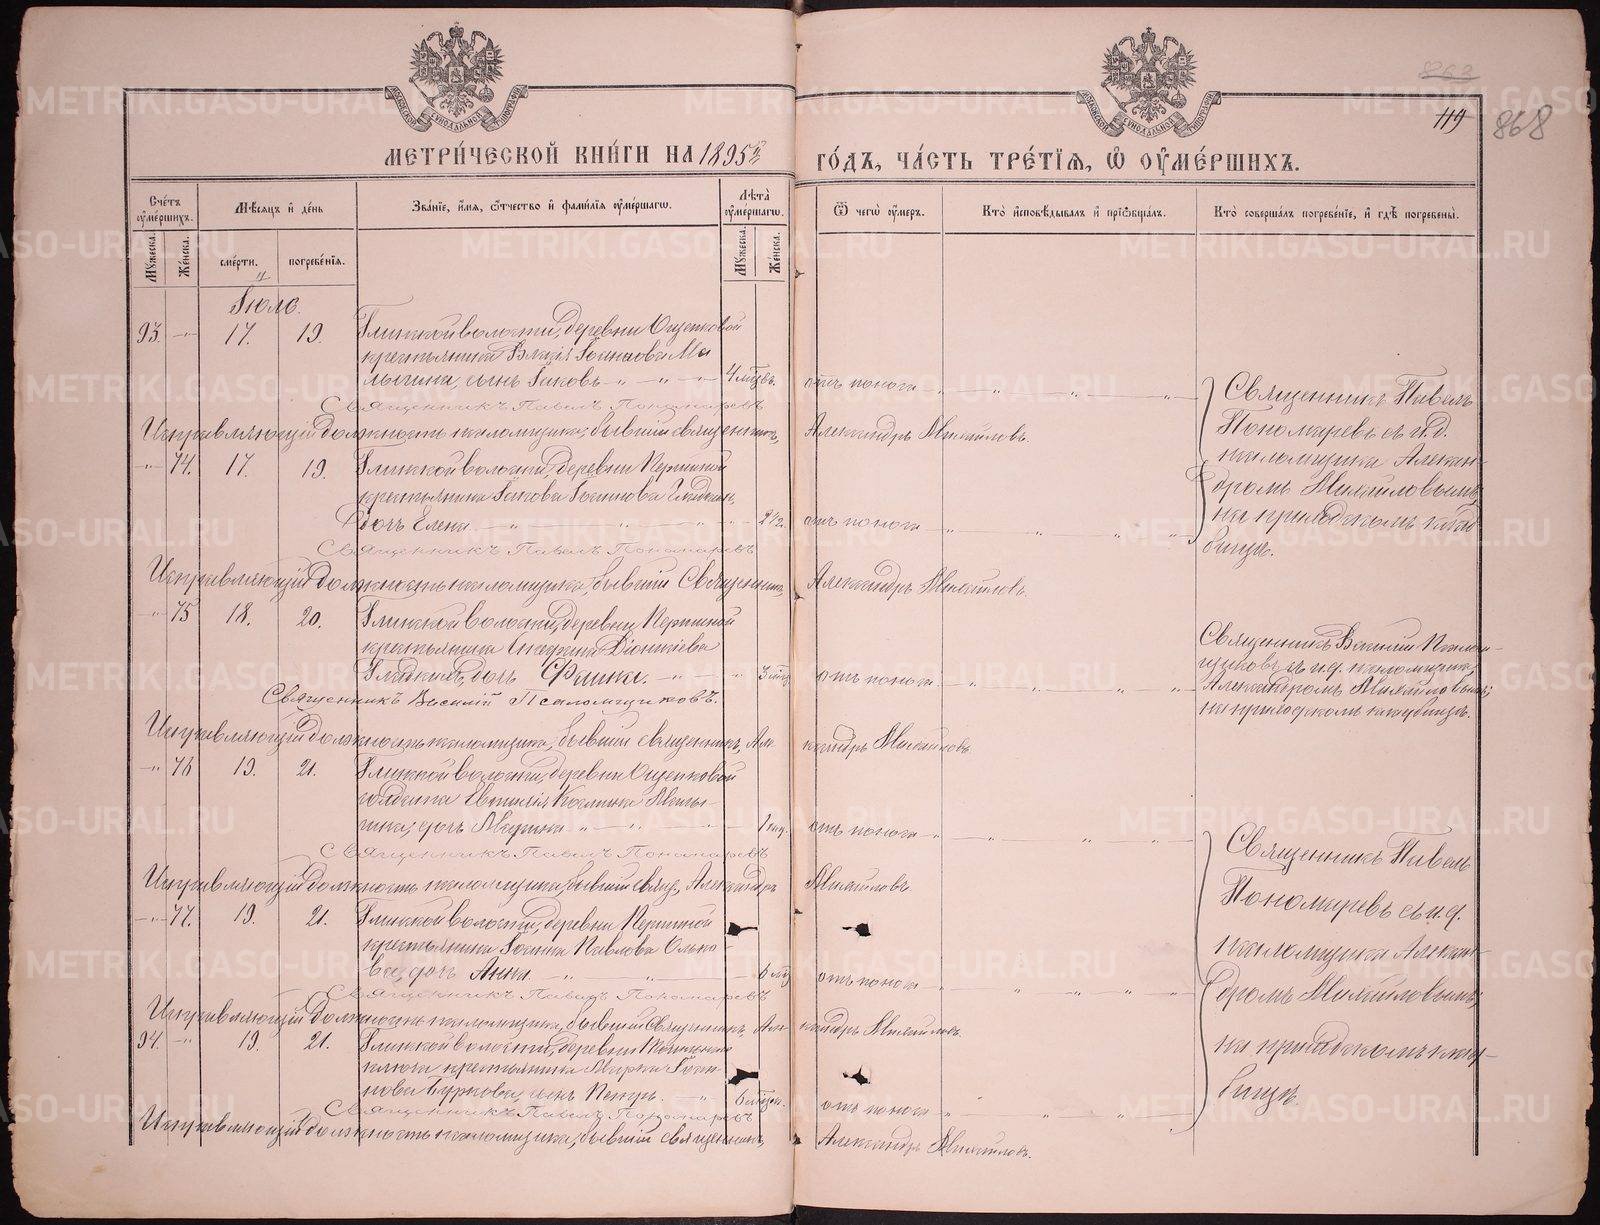 863
119 868
МЕТРИЧЕСКОЙ КНИГИ НА 1895й
ГОДЪ, ЧАСТЬ ТРЕТІЯ, Ѽ ОУМЕРШИХЪ.
Счетъ оумершихъ.
Мѣсяцъ и день
Званіе, имя, ѿчество и фамилія оумершагѡ.
Лѣта оумершагѡ.
Ѿ чегѡ оумеръ.
Кто исповѣдывалъ и пріѡбщалъ.
Кто совершалъ погребеніе, и гдѣ погребены.
Мужеска.
Женска.
смерти.
погребенія.
Мужеска.
Женска.
Іюль.
93. -„- 17. 19. Глинской волости, деревни Ощепковой
крестьянина Власія Іоаннова Ма
лыгина, сынъ Іаковъ -„-„-„- 4 мѣс. отъ поноса
Священникъ Павелъ Пономаревъ
Исправляющій должность псаломщика, бывшій священникъ, Александръ Михайловъ.
Священникъ Павелъ
Пономаревъ съ и.д.
псаломщика Алексан-
дромъ Михайловымъ,
на приходскомъ клад
бищѣ.
-„- 74. 17. 19. Глинской волости, деревни Першиной
крестьянина Іакова Іоаннова
дочь Елена -„- 2½. отъ поноса
Священникъ Павелъ Пономаревъ
Исправляющій должность псаломщика, бывшій Священникъ, Александръ Михайловъ.
-„- 75 18. 20. Глинской волости, деревни Першиной
крестьянина Діонисіева
Гладкихъ, дочь Фаина. -„- 3 мѣс. отъ поноса
Священникъ Василій Псаломщиковъ.
Исправляющій должность псаломщика, бывшій священникъ, Але
ксандръ Михайловъ
Священникъ Василій Псалом-
щиковъ съ и.д. псаломщика,
Александромъ Михайловымъ,
на приходскомъ кладбищѣ.
-„- 76 19. 21. Глинской волости, деревни Ощепковой
солдатка Евпраксія Малы-
гина, дочь Марина -„- отъ поноса
Священникъ Павелъ Пономаревъ
Исправляющій должность псаломщика, бывшій свящ., Александръ Михайловъ.
Священникъ Павелъ
Пономаревъ съ и.д.
псаломщика Алексан-
дромъ Михайловымъ,
на приходскомъ клад-
бищѣ.
-„- 77. 19. 21. Глинской волости, деревни Першиной
крестьянина Іоанна Павлова Олько-
ва, дочь Анна -„- отъ поноса
Священникъ Павелъ Пономаревъ
Исправляющій должность псаломщика, бывшій Священникъ, Але
ксандръ Михайловъ.
94. -„- 19. 21. Глинской волости, деревни
ключа крестьянина Марка Іоан-
нова Буркова, сынъ Петръ. -„- 6 мѣсяц. отъ поноса
Священникъ Павелъ Пономаревъ
Исправляющій должность псаломщика, бывшій священникъ, Александръ Михайловъ.
METRIKI.GASO-URAL.RU